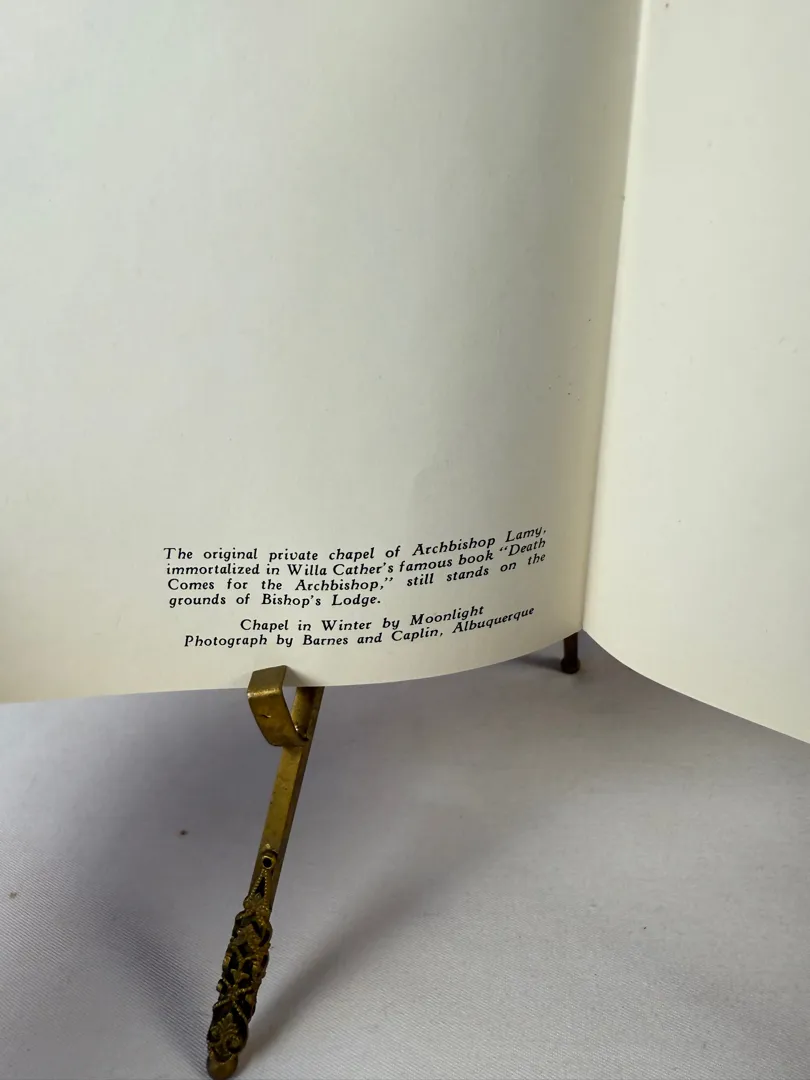 The original private chapel of Archbishop Lamy,
immortalized in Willa Cather's famous book "Death
Comes for the Archbishop," still stands on the
grounds of Bishop's Lodge.
Chapel in Winter by Moonlight
Photograph by Barnes and Caplin, Albuquerque